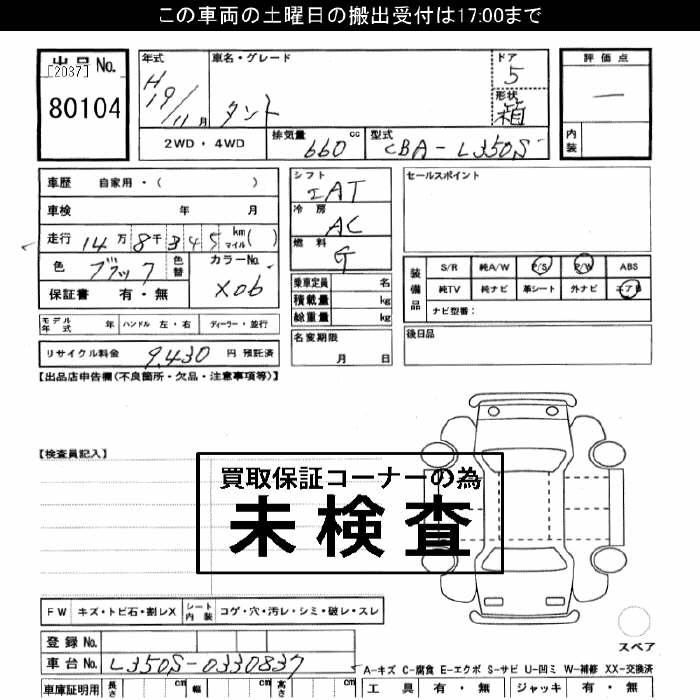 この車両の土曜日の搬出受付は17:00まで
出品No.
[2037]
80104
年式
H19/11月
車名・グレード
タント
ドア
5
形状
箱
2WD・4WD
排気量
660 cc
型式
CBA-L350S
評価点
―
内装
車歴 自家用・( )
車検 年 月
走行 14万8千345 km マイル( )
色 ブラック 色替
カラーNo.
X06
保証書 有・無
シフト
IAT
冷房
AC
燃料
G
乗車定員 名
積載量 kg
総重量 kg
セールスポイント
装備品
S/R 純A/W P/S P/W ABS
純TV 純ナビ 革シート 外ナビ エアB
ナビ型番:
モデル年式 年 ハンドル 左・右 ディーラー・並行
リサイクル料金 9,430 円 預託済
名変期限
月 日
後日品
【出品店申告欄(不良箇所・欠品・注意事項等)】
【検査員記入】
買取保証コーナーの為
未検査
FW キズ・トビ石・割レX シート内装 コゲ・穴・汚レ・シミ・破レ・スレ
スペア
登録No.
車台No. L350S-0330837
A-キズ C-腐食 E-エクボ S-サビ U-凹ミ W-補修 XX-交換済
車庫証明用 長さ cm 幅 cm 高さ cm
工具 有・無 ジャッキ 有・無